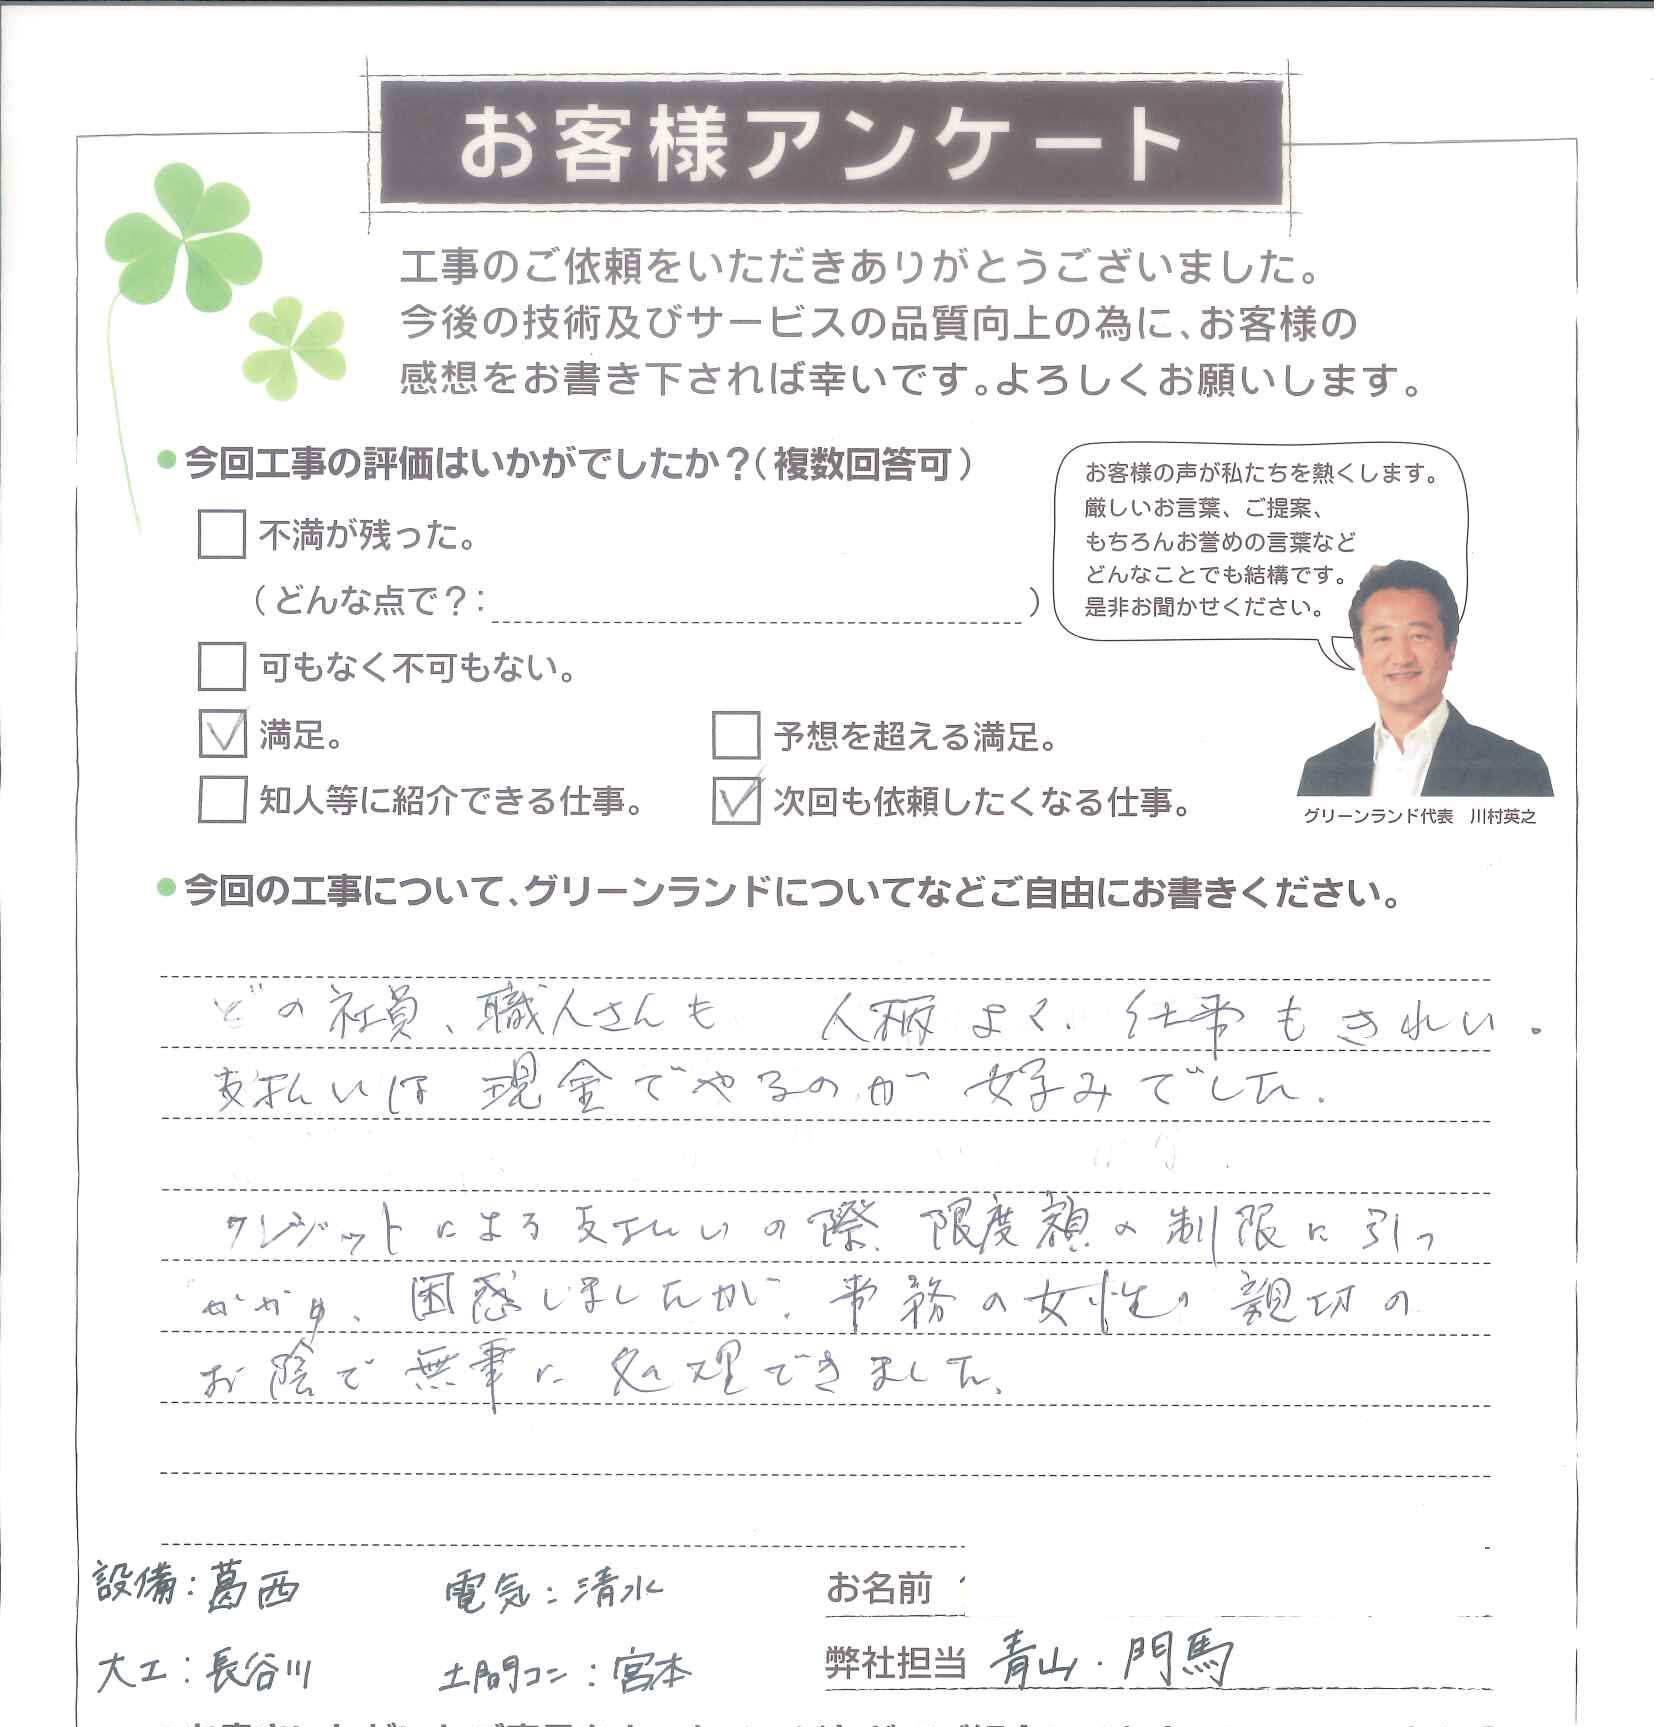 お客様アンケート
工事のご依頼をいただきありがとうございました。
今後の技術及びサービスの品質向上の為に、お客様の
感想をお書き下されば幸いです。よろしくお願いします。
●今回工事の評価はいかがでしたか?(複数回答可)
不満が残った。
(どんな点で?: )
可もなく不可もない。
満足。
予想を超える満足。
知人等に紹介できる仕事。
次回も依頼したくなる仕事。
お客様の声が私たちを熱くします。
厳しいお言葉、ご提案、
もちろんお誉めの言葉など
どんなことでも結構です。
是非お聞かせください。
グリーンランド代表 川村英之
●今回の工事について、グリーンランドについてなどご自由にお書きください。
どの社員、職人さんも 人柄よく、仕事もきれい。
支払いは現金でやるのが好みでした。
クレジットによる支払いの際、限度額の制限に引っ
かかり、困惑しましたが、事務の女性の親切の
お陰で無事に処理できました。
設備:葛西
電気:清水
お名前
大工:長谷川
土間コン:宮本
弊社担当 青山・門馬